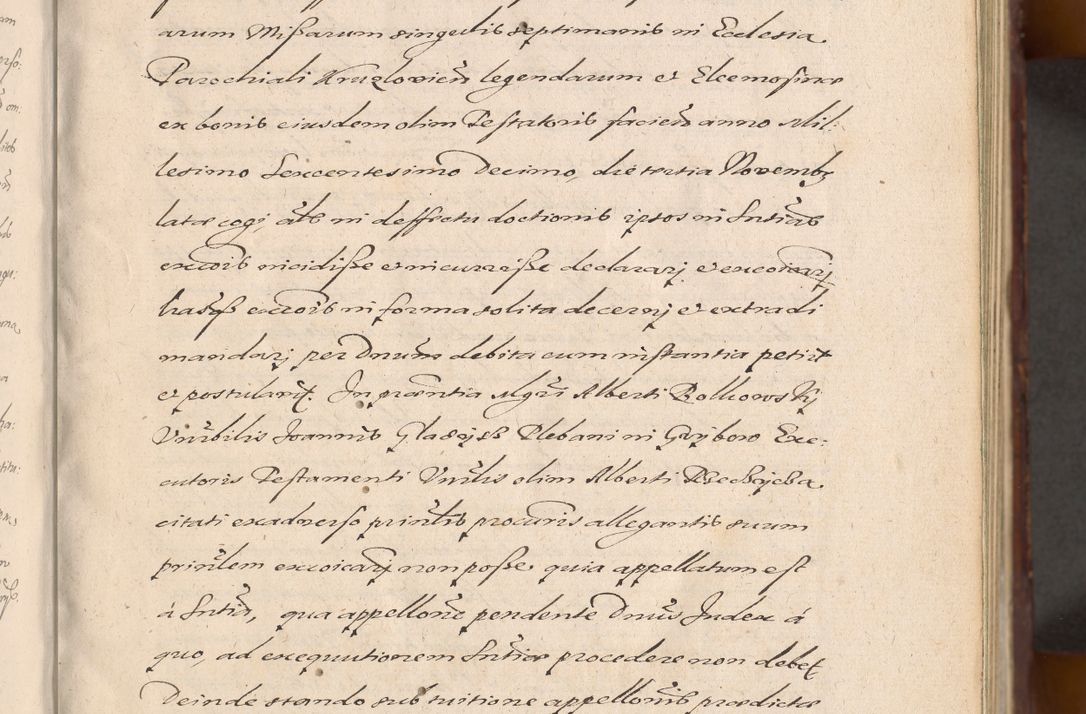 arum Mißarum singulis septimanis in Ecclesia
Parochiali Kruzlovien̄ legendarum et Eleemosinæ
ex bonis eiusdem olim Testatoris facien̄ anno Mil:
lesimo Sexcentesimo Decimo, die tertia Novembꝫ
latæ cogj, alt̄s in deffectu doctionis ipsos in Sntias
excōis incidiße et incurriße declararj et excoīcarj
hasq̄ß excōis in forma solita decernj et extradi
mandarj per Dnum debita cum instantia petijt
et postulavit. In præntia Mgri Alberti Rolkowskj
Vnrbilis Joannis Gladijß Plebani in Grijbow Exe:
cutoris Testamenti Vnrlis olim Alberti Rzechijcha
citati exadverso prinlis procuris allegantis suum
prinlem excoicarj non poße quia appellatum est
á Sntia, qua appellone pendente Dnus Judex á
quo, ad exequutionem Sntiæ procedere non debet
Deinde stando sub tuitione appellonis prædictæ